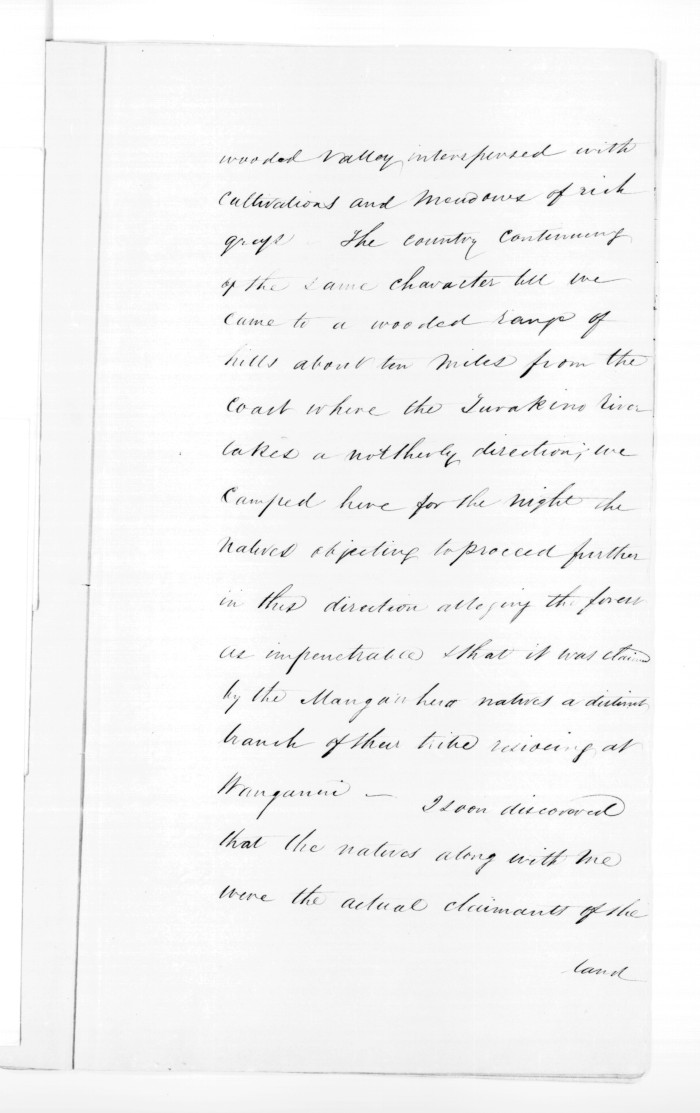 wooded valley interspersed with
cultivations and meadows of rich
grass The country continuing
of the same character till we
came to a wooded range of
hills about ten miles from the
coast where the Turakino river
takes a northerly direction; we
camped here for the night the
natives objecting to proceed further
in this direction alleging the forest
as impenetrable & that it was claimed
by the Manganhero natives a distinct
branch of their tribe residing at
Wanganui — I soon discovered
that the natives along with me
were the actual claimants of the
land